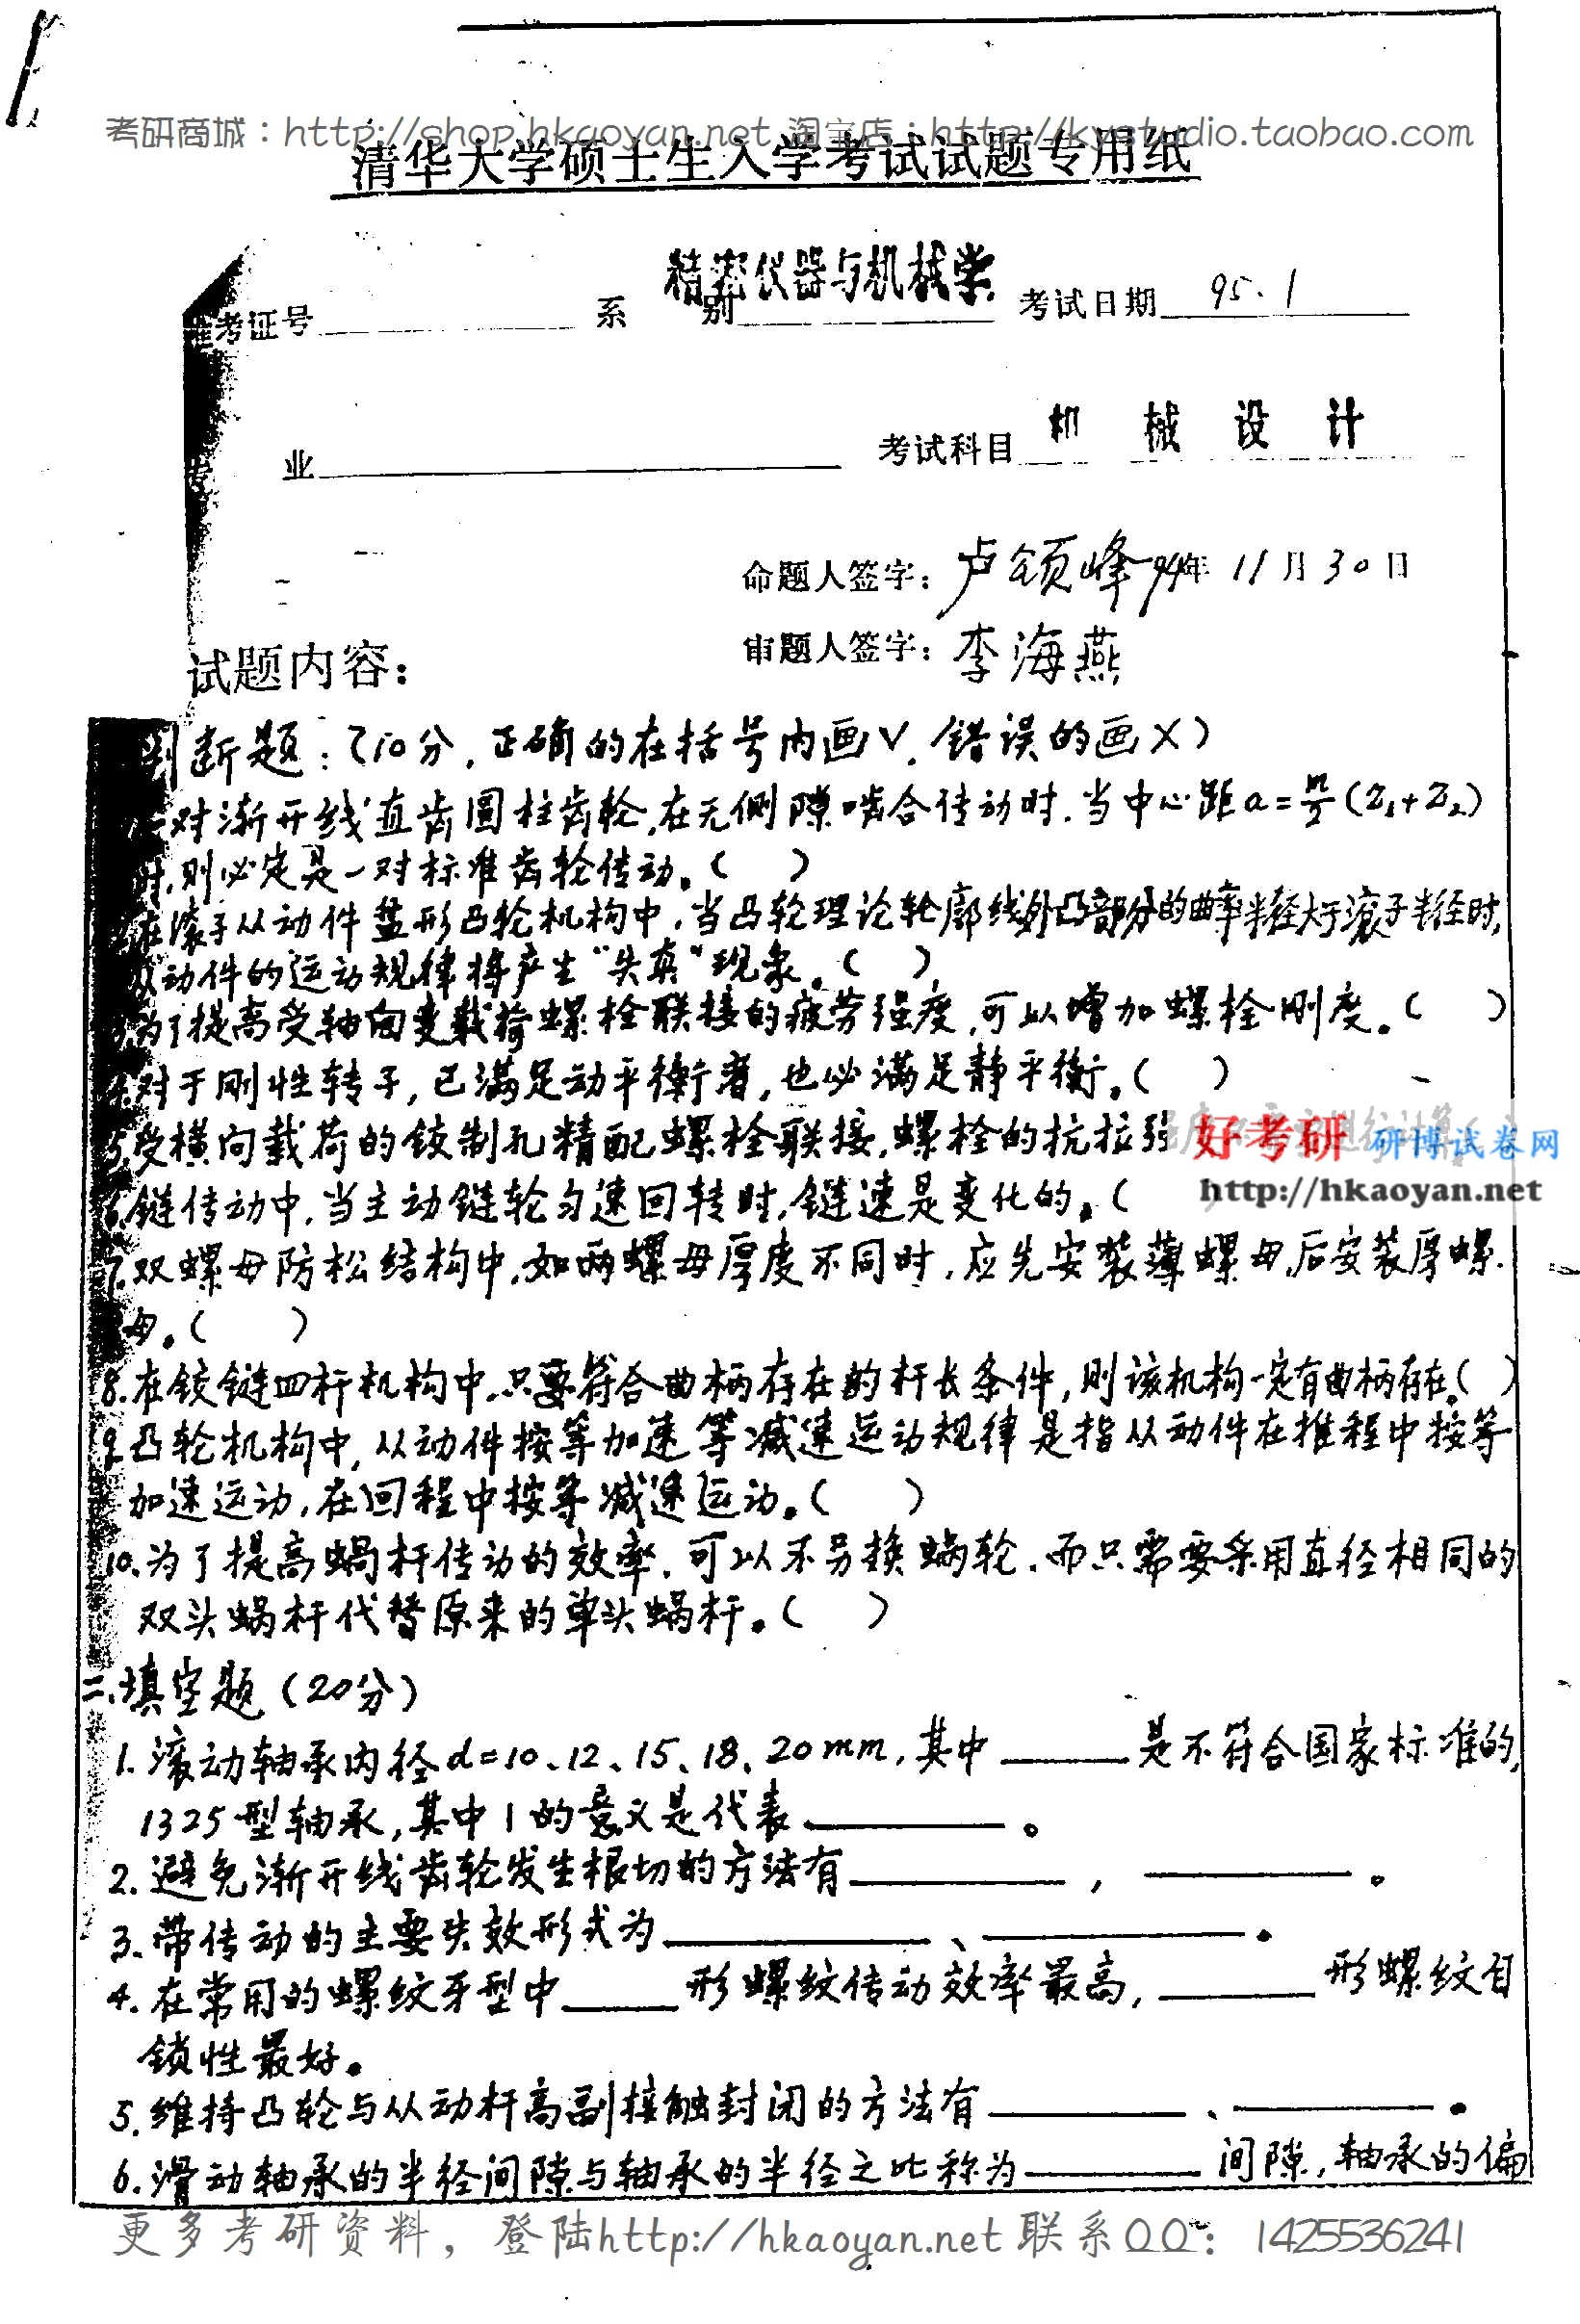 考研商城：http://shop.hkaoyan.net 淘宝店：http://kystudio.taobao.com
清华大学硕士生入学考试试题专用纸
准考证号 系 别 精密仪器与机械学 考试日期 95.1
专 业 考试科目 机 械 设 计
命题人签字： 卢颂峰 94年 11月 30日
审题人签字：李海燕
试题内容：
判断题：(10分，正确的在括号内画V，错误的画X)
一对渐开线直齿圆柱齿轮，在无侧隙啮合传动时，当中心距a=m/2(Z₁+Z₂)
时，则必定是一对标准齿轮传动。( )
2.在滚子从动件盘形凸轮机构中，当凸轮理论轮廓线外凸部分的曲率半径大于滚子半径时，
从动件的运动规律将产生“失真”现象。( )
3.为了提高受轴向变载荷螺栓联接的疲劳强度，可以增加螺栓刚度。( )
4.对于刚性转子，已满足动平衡者，也必满足静平衡。( )
5.受横向载荷的铰制孔精配螺栓联接，螺栓的抗拉强
好考研 研博试卷网
http://hkaoyan.net
6.链传动中，当主动链轮匀速回转时，链速是变化的。(
7.双螺母防松结构中，如两螺母厚度不同时，应先安装薄螺母，后安装厚螺
母。( )
8.在铰链四杆机构中，只要符合曲柄存在的杆长条件，则该机构一定有曲柄存在。( )
9.凸轮机构中，从动件按等加速等减速运动规律是指从动件在推程中按等
加速运动，在回程中按等减速运动。( )
10.为了提高蜗杆传动的效率，可以不另换蜗轮，而只需要采用直径相同的
双头蜗杆代替原来的单头蜗杆。( )
二.填空题(20分)
1.滚动轴承内径d=10、12、15、18、20mm，其中____是不符合国家标准的，
1325型轴承，其中1的意义是代表____。
2.避免渐开线齿轮发生根切的方法有____，____。
3.带传动的主要失效形式为____、____。
4.在常用的螺纹牙型中____形螺纹传动效率最高，____形螺纹自
锁性最好。
5.维持凸轮与从动杆高副接触封闭的方法有____、____。
6.滑动轴承的半径间隙与轴承的半径之比称为____间隙，轴承的偏
更多考研资料，登陆http://hkaoyan.net 联系QQ：1425536241